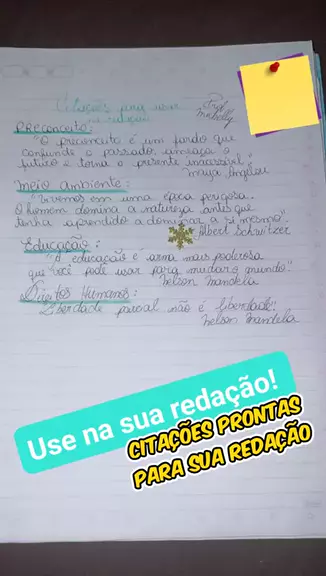 Citações para usar
na redação
Profª
Michelly
Preconceito:
"O preconceito é um fardo que
confunde o passado, ameaça o
futuro e torna o presente inacessível"
Maya Angelou
Meio ambiente:
"Vivemos em uma época perigosa.
O homem domina a natureza antes que
tenha aprendido a dominar a si mesmo"
Albert Schwitzer
Educação:
"A educação é arma mais poderosa
que você pode usar para mudar o mundo"
Nelson Mandela
Direitos Humanos:
"Liberdade parcial não é liberdade"
Nelson Mandela
Use na sua redação!
CITAÇÕES PRONTAS
PARA SUA REDAÇÃO